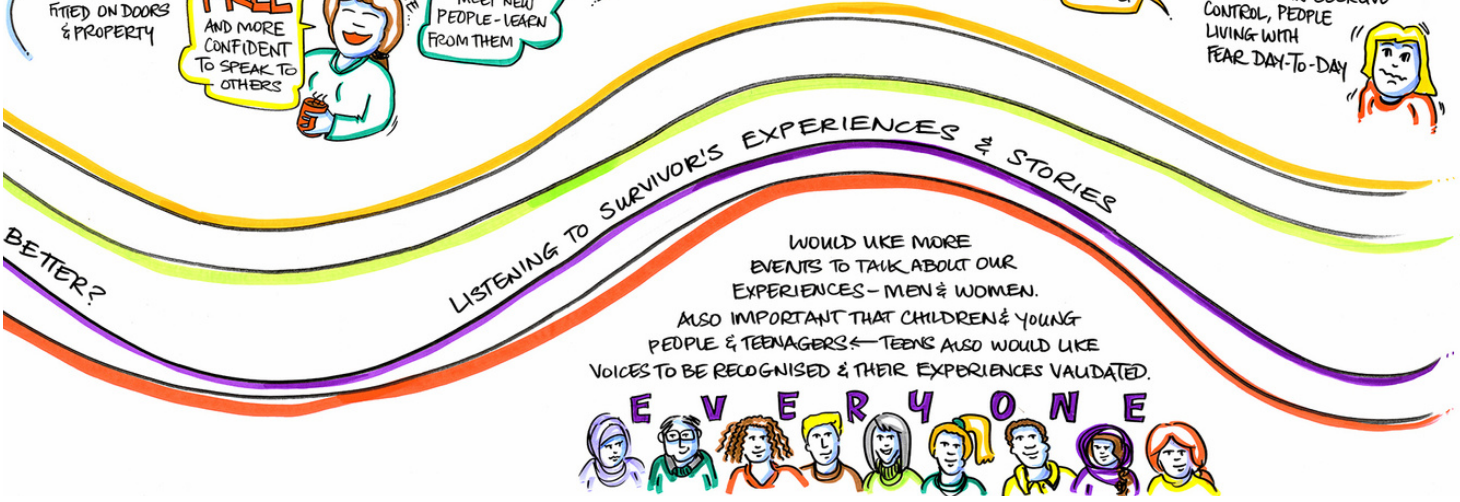 FITTED ON DOORS
& PROPERTY
FREE
AND MORE
CONFIDENT
TO SPEAK TO
OTHERS
MEET NEW
PEOPLE - LEARN
FROM THEM
CONTROL, PEOPLE
LIVING WITH
FEAR DAY-TO-DAY
BETTER?
LISTENING TO SURVIVOR'S EXPERIENCES & STORIES
WOULD LIKE MORE
EVENTS TO TALK ABOUT OUR
EXPERIENCES - MEN & WOMEN.
ALSO IMPORTANT THAT CHILDREN & YOUNG
PEOPLE & TEENAGERS ← TEENS ALSO WOULD LIKE
VOICES TO BE RECOGNISED & THEIR EXPERIENCES VALIDATED.
EVERYONE